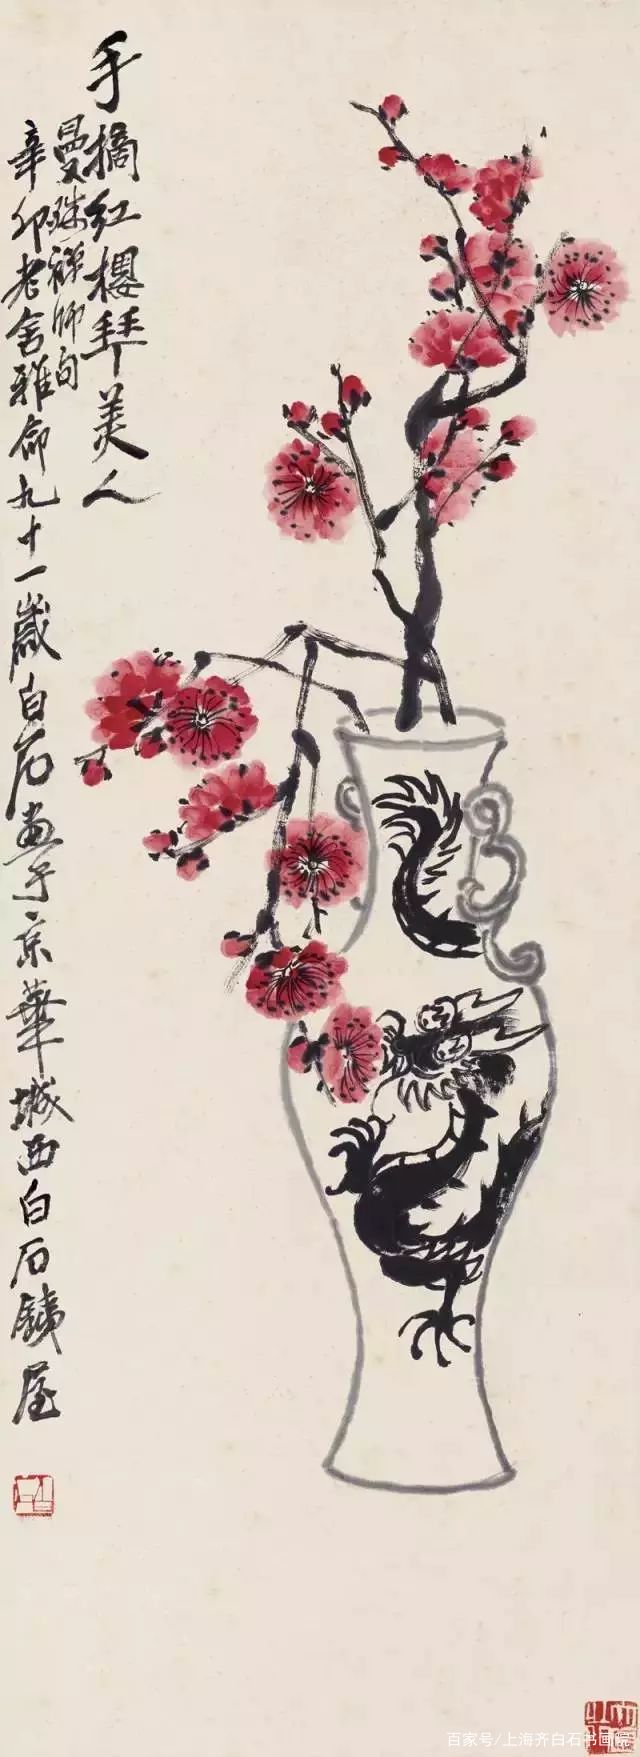 手摘红樱拜美人
曼殊禅师句
辛卯老舍雅命九十一歳白石画于京华城西白石铁屋
百家号/上海齐白石书画院